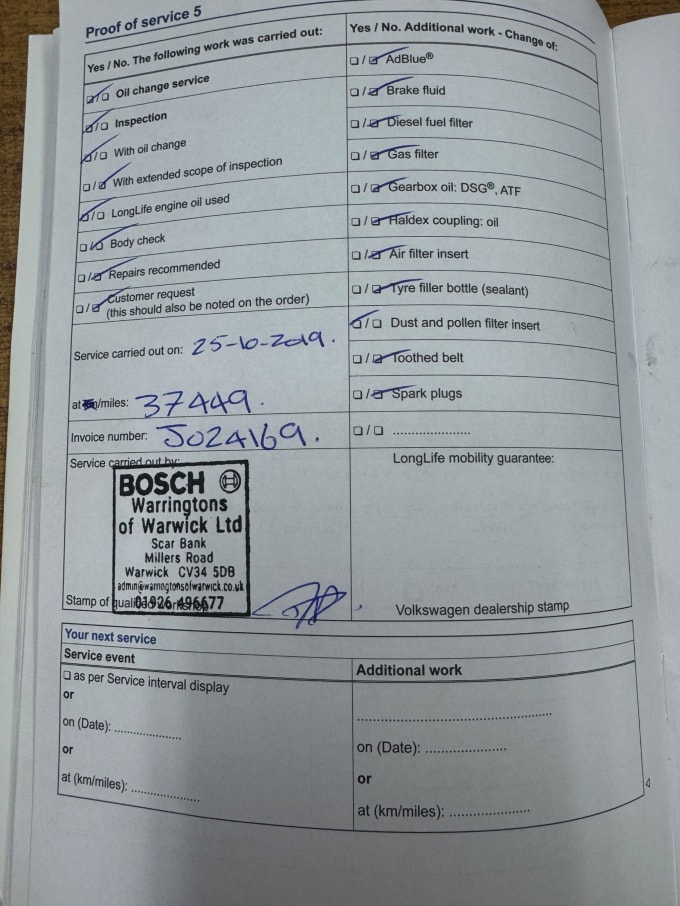 Proof of service 5
Yes / No. The following work was carried out:
☑/☐ Oil change service
☑/☐ Inspection
☑/☐ With oil change
☐/☑ With extended scope of inspection
☑/☐ LongLife engine oil used
☐/☑ Body check
☐/☑ Repairs recommended
☐/☑ Customer request
(this should also be noted on the order)
Service carried out on: 25-10-2019.
at km/miles: 37449.
Invoice number: J024169.
Service carried out by:
BOSCH
Warringtons
of Warwick Ltd
Scar Bank
Millers Road
Warwick CV34 5DB
admin@warringtonsofwarwick.co.uk
01926 496677
Stamp of qualified workshop
Yes / No. Additional work - Change of:
☐/☑ AdBlue®
☐/☑ Brake fluid
☐/☑ Diesel fuel filter
☐/☑ Gas filter
☐/☑ Gearbox oil: DSG®, ATF
☐/☑ Haldex coupling: oil
☐/☑ Air filter insert
☐/☑ Tyre filler bottle (sealant)
☑/☐ Dust and pollen filter insert
☐/☑ Toothed belt
☐/☑ Spark plugs
☐/☐ ......................
LongLife mobility guarantee:
Volkswagen dealership stamp
Your next service
Service event
☐ as per Service interval display
or
on (Date): ...................
or
at (km/miles): ...................
Additional work
......................................................
on (Date): ......................
or
at (km/miles): ......................